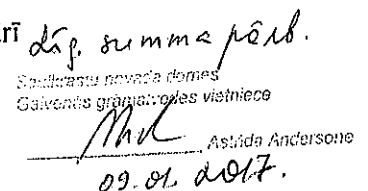 rī līg. summa pārb.
Saulkrastu novada domes
Galvenās grāmatvedes vietniece
Astrīda Andersone
09.01.2017.